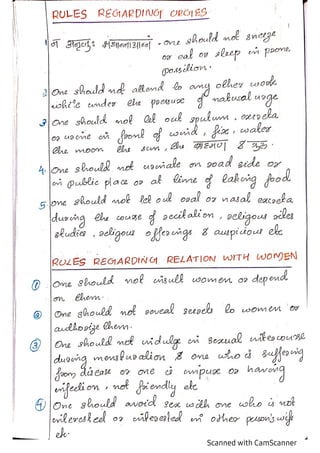 RULES REGARDING URGIES
1 न - one should not sneeze
or eat or sleep in prone
position.
2 One should not attend to any other work
while under the pressure of natural urge
3 One should not let out sputum, excreta
or urine in front of wind, fire, water
the moon the sun, the &
4. One should not urinate on road side or
in public place or at time of taking food
5 one should not let out oral or nasal excreta
during the course of recitation, religous rites
studies, religous offerings & auspicious etc
RULES REGARDING RELATION WITH WOMEN
① One should not insult women or depend
on them.
② One should not reveal secrets to women or
authorize them.
③ One should not indulge in sexual intercourse
during menstruation & one who is suffering
from disease or one is impure or having
infection, not friendly etc
④ One should avoid sex with one who is not
interested or interested in other person's wife
etc.
Scanned with CamScanner